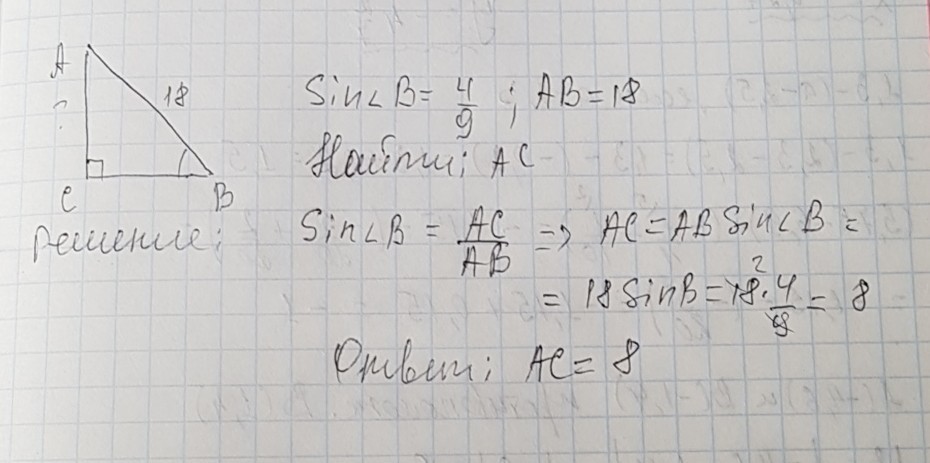 A
?
18
C
B
Sin∠B = 4/9 ; AB = 18
Найти: AC
Решение:
Sin∠B = AC/AB => AC = AB Sin∠B =
= 18 SinB = 18² · 4/9 = 8
Ответ: AC = 8